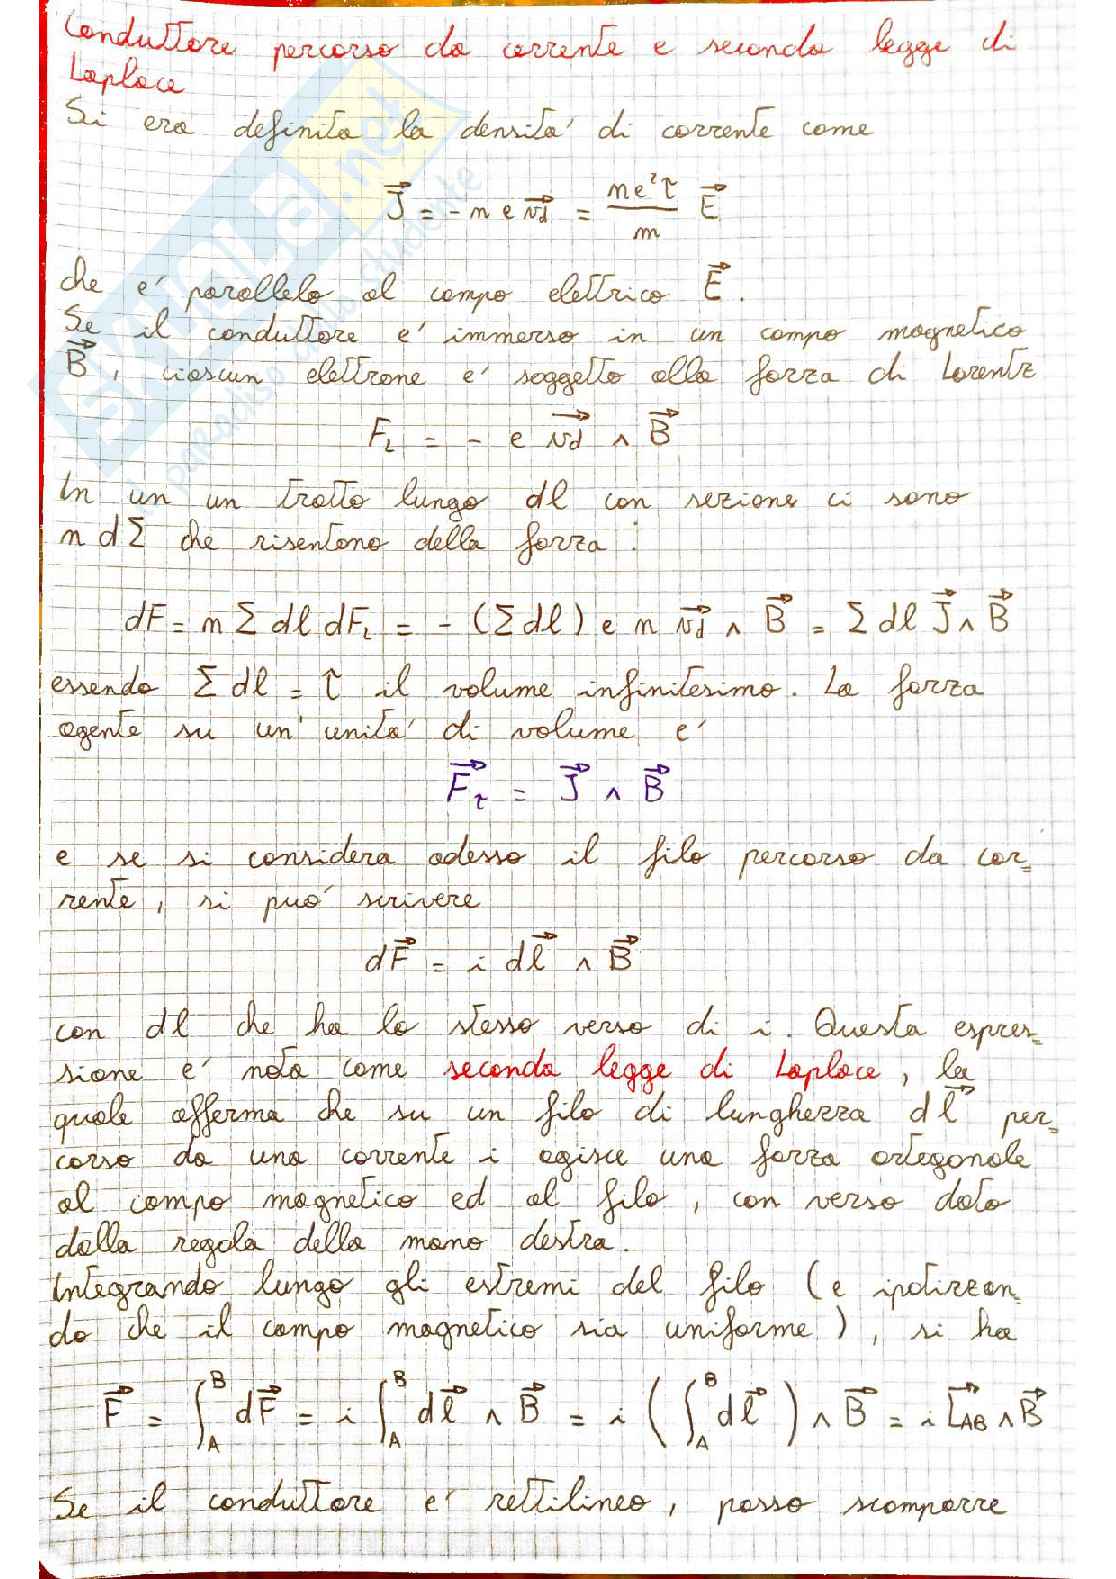 Conduttore percorso da corrente e seconda legge di
Laplace
Si era definita la densita' di corrente come
J⃗ = - n e v⃗d = ne²τ/m E⃗
che e' parallelo al campo elettrico E⃗.
Se il conduttore e' immerso in un campo magnetico
B⃗, ciascun elettrone e' soggetto alla forza di Lorentz
F_L = - e v⃗d ∧ B⃗
In un un tratto lungo dl con sezione ci sono
n dΣ che risentono della forza:
dF = n Σ dl dF_L = - (Σ dl) e n v⃗d ∧ B⃗ = Σ dl J⃗ ∧ B⃗
essendo Σ dl = τ il volume infinitesimo. La forza
agente su un' unita' di volume e'
F⃗_τ = J⃗ ∧ B⃗
e se si considera adesso il filo percorso da cor=
rente, si puo' scrivere
dF⃗ = i dl⃗ ∧ B⃗
con dl che ha lo stesso verso di i. Questa espres=
sione e' nota come seconda legge di Laplace, la
quale afferma che su un filo di lunghezza dl⃗ per=
corso da una corrente i agisce una forza ortogonale
al campo magnetico ed al filo, con verso dato
dalla regola della mano destra.
Integrando lungo gli estremi del filo (e ipotizzan=
do che il campo magnetico sia uniforme), si ha
F⃗ = ∫_A^B dF⃗ = i ∫_A^B dl⃗ ∧ B⃗ = i (∫_A^B dl⃗) ∧ B⃗ = i L⃗_AB ∧ B⃗
Se il conduttore e' rettilineo, posso scomporre